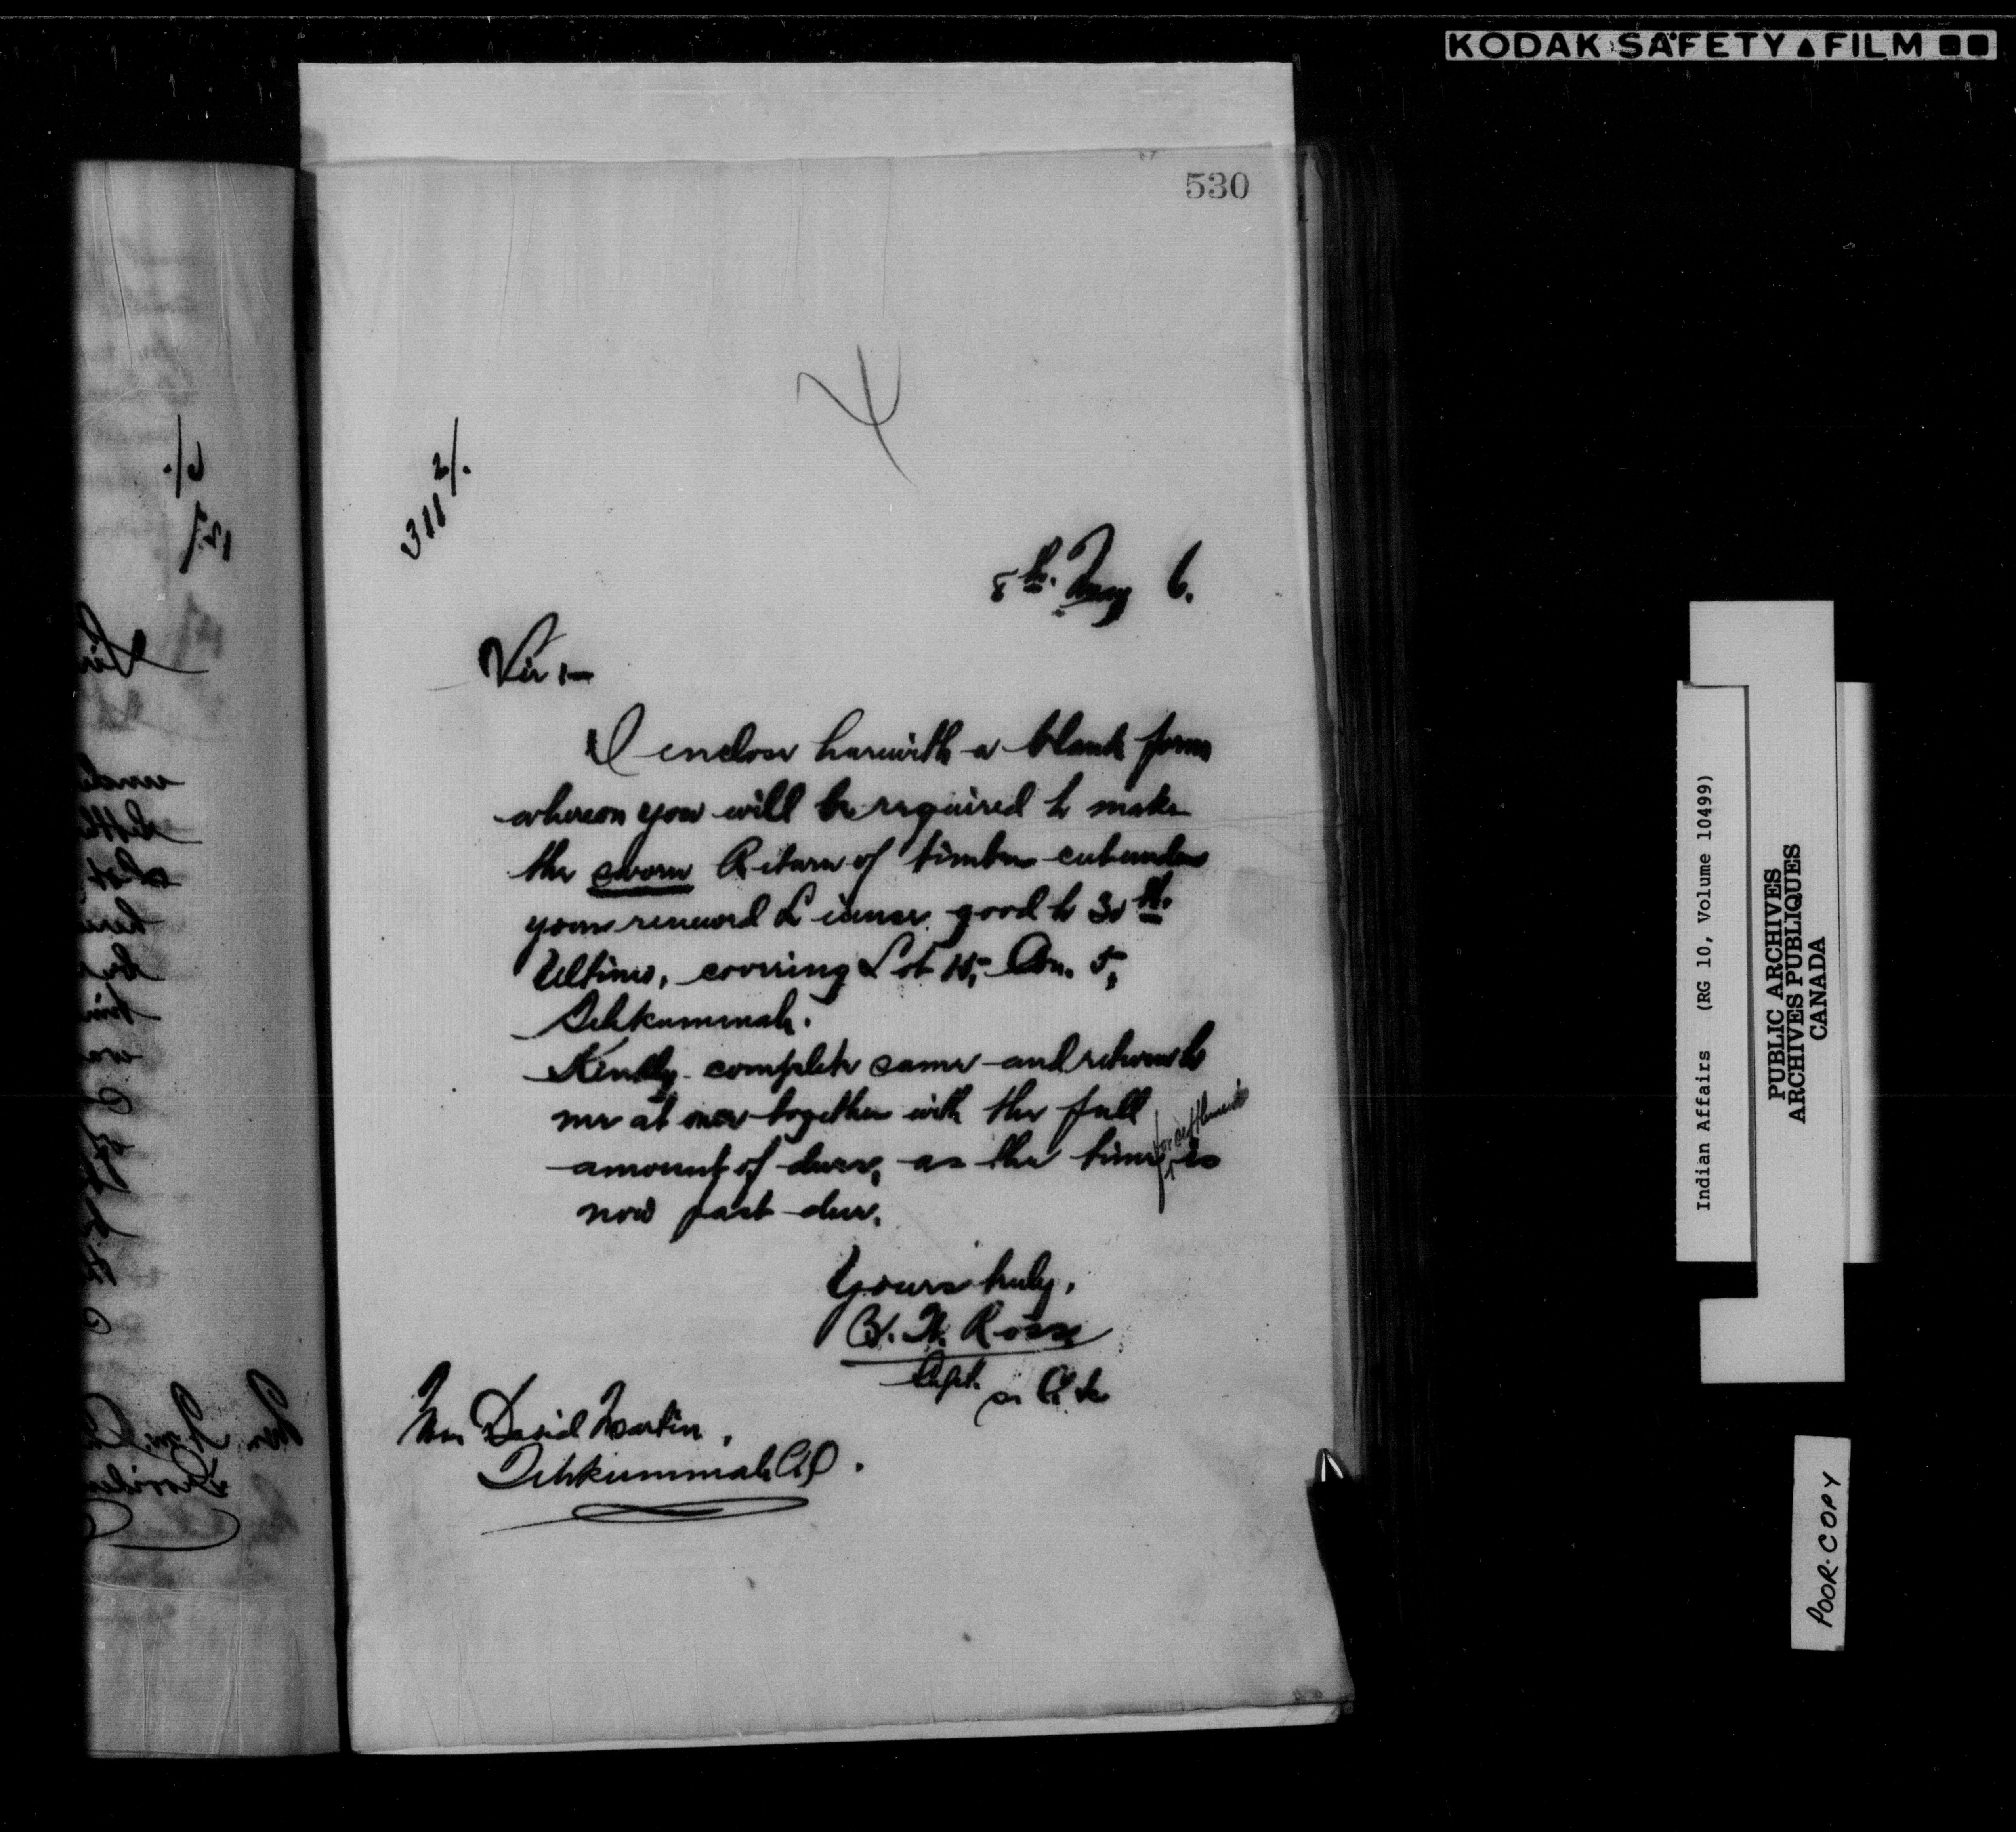 KODAK SAFETY FILM
530
311 2/.
8th. May 6.
Sir :—
I enclose herewith a blank form
whereon you will be required to make
the sworn Return of timber cut under
your renewed License good to 30th.
Ultimo, covering Lot 15, Con. 5,
Tehkummah.
Kindly complete same and return to
me at once together with the full
amount of dues, as the time for settlement is
now past due.
Yours truly,
Ross
Agt.
Mr. David Martin,
Tehkummah P.O.
Indian Affairs (RG 10, Volume 10499)
PUBLIC ARCHIVES
ARCHIVES PUBLIQUES
CANADA
POOR COPY